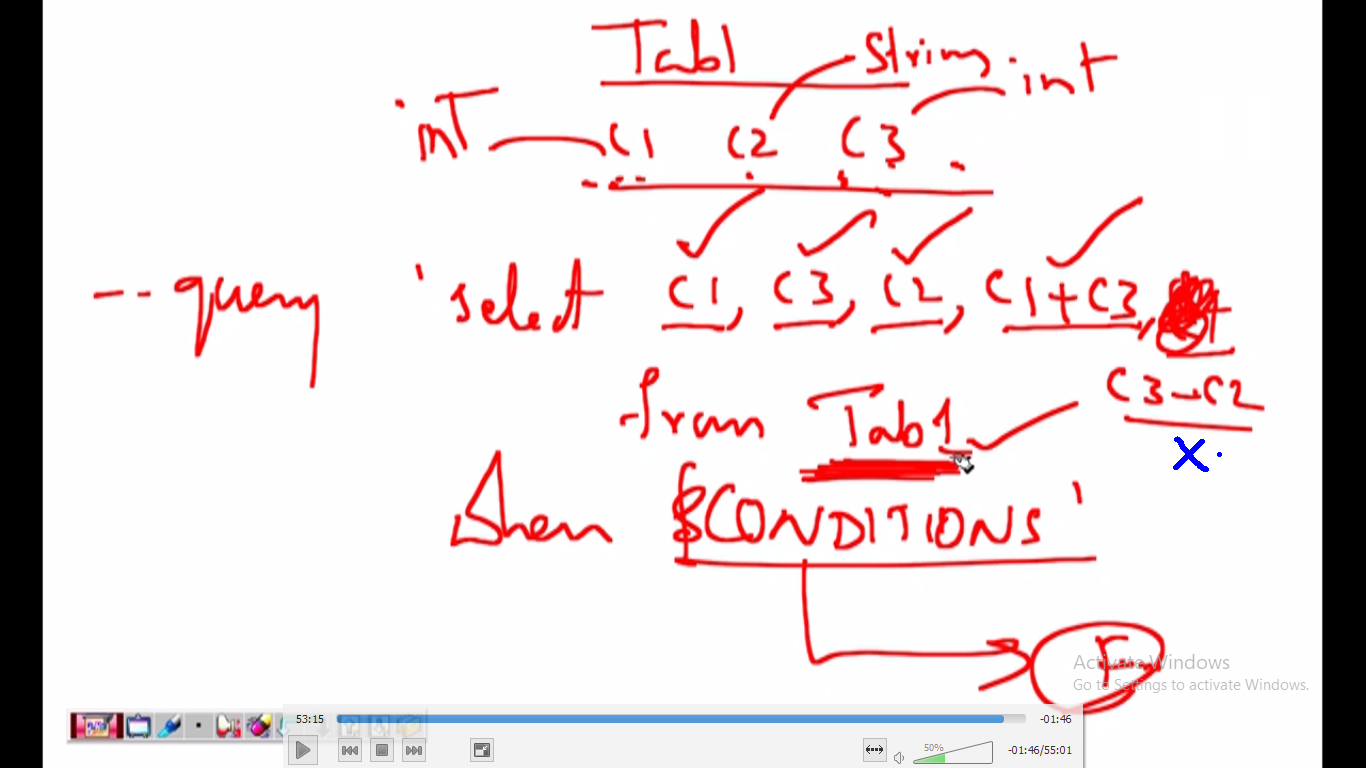 Tab1
String int
int C1 C2 C3
-- query 'select C1, C3, C2, C1+C3,
C3-C2
from Tab1
x
$CONDITIONS'
F
Activate Windows
Go to Settings to activate Windows.
53:15 -01:46
50% -01:46/55:01